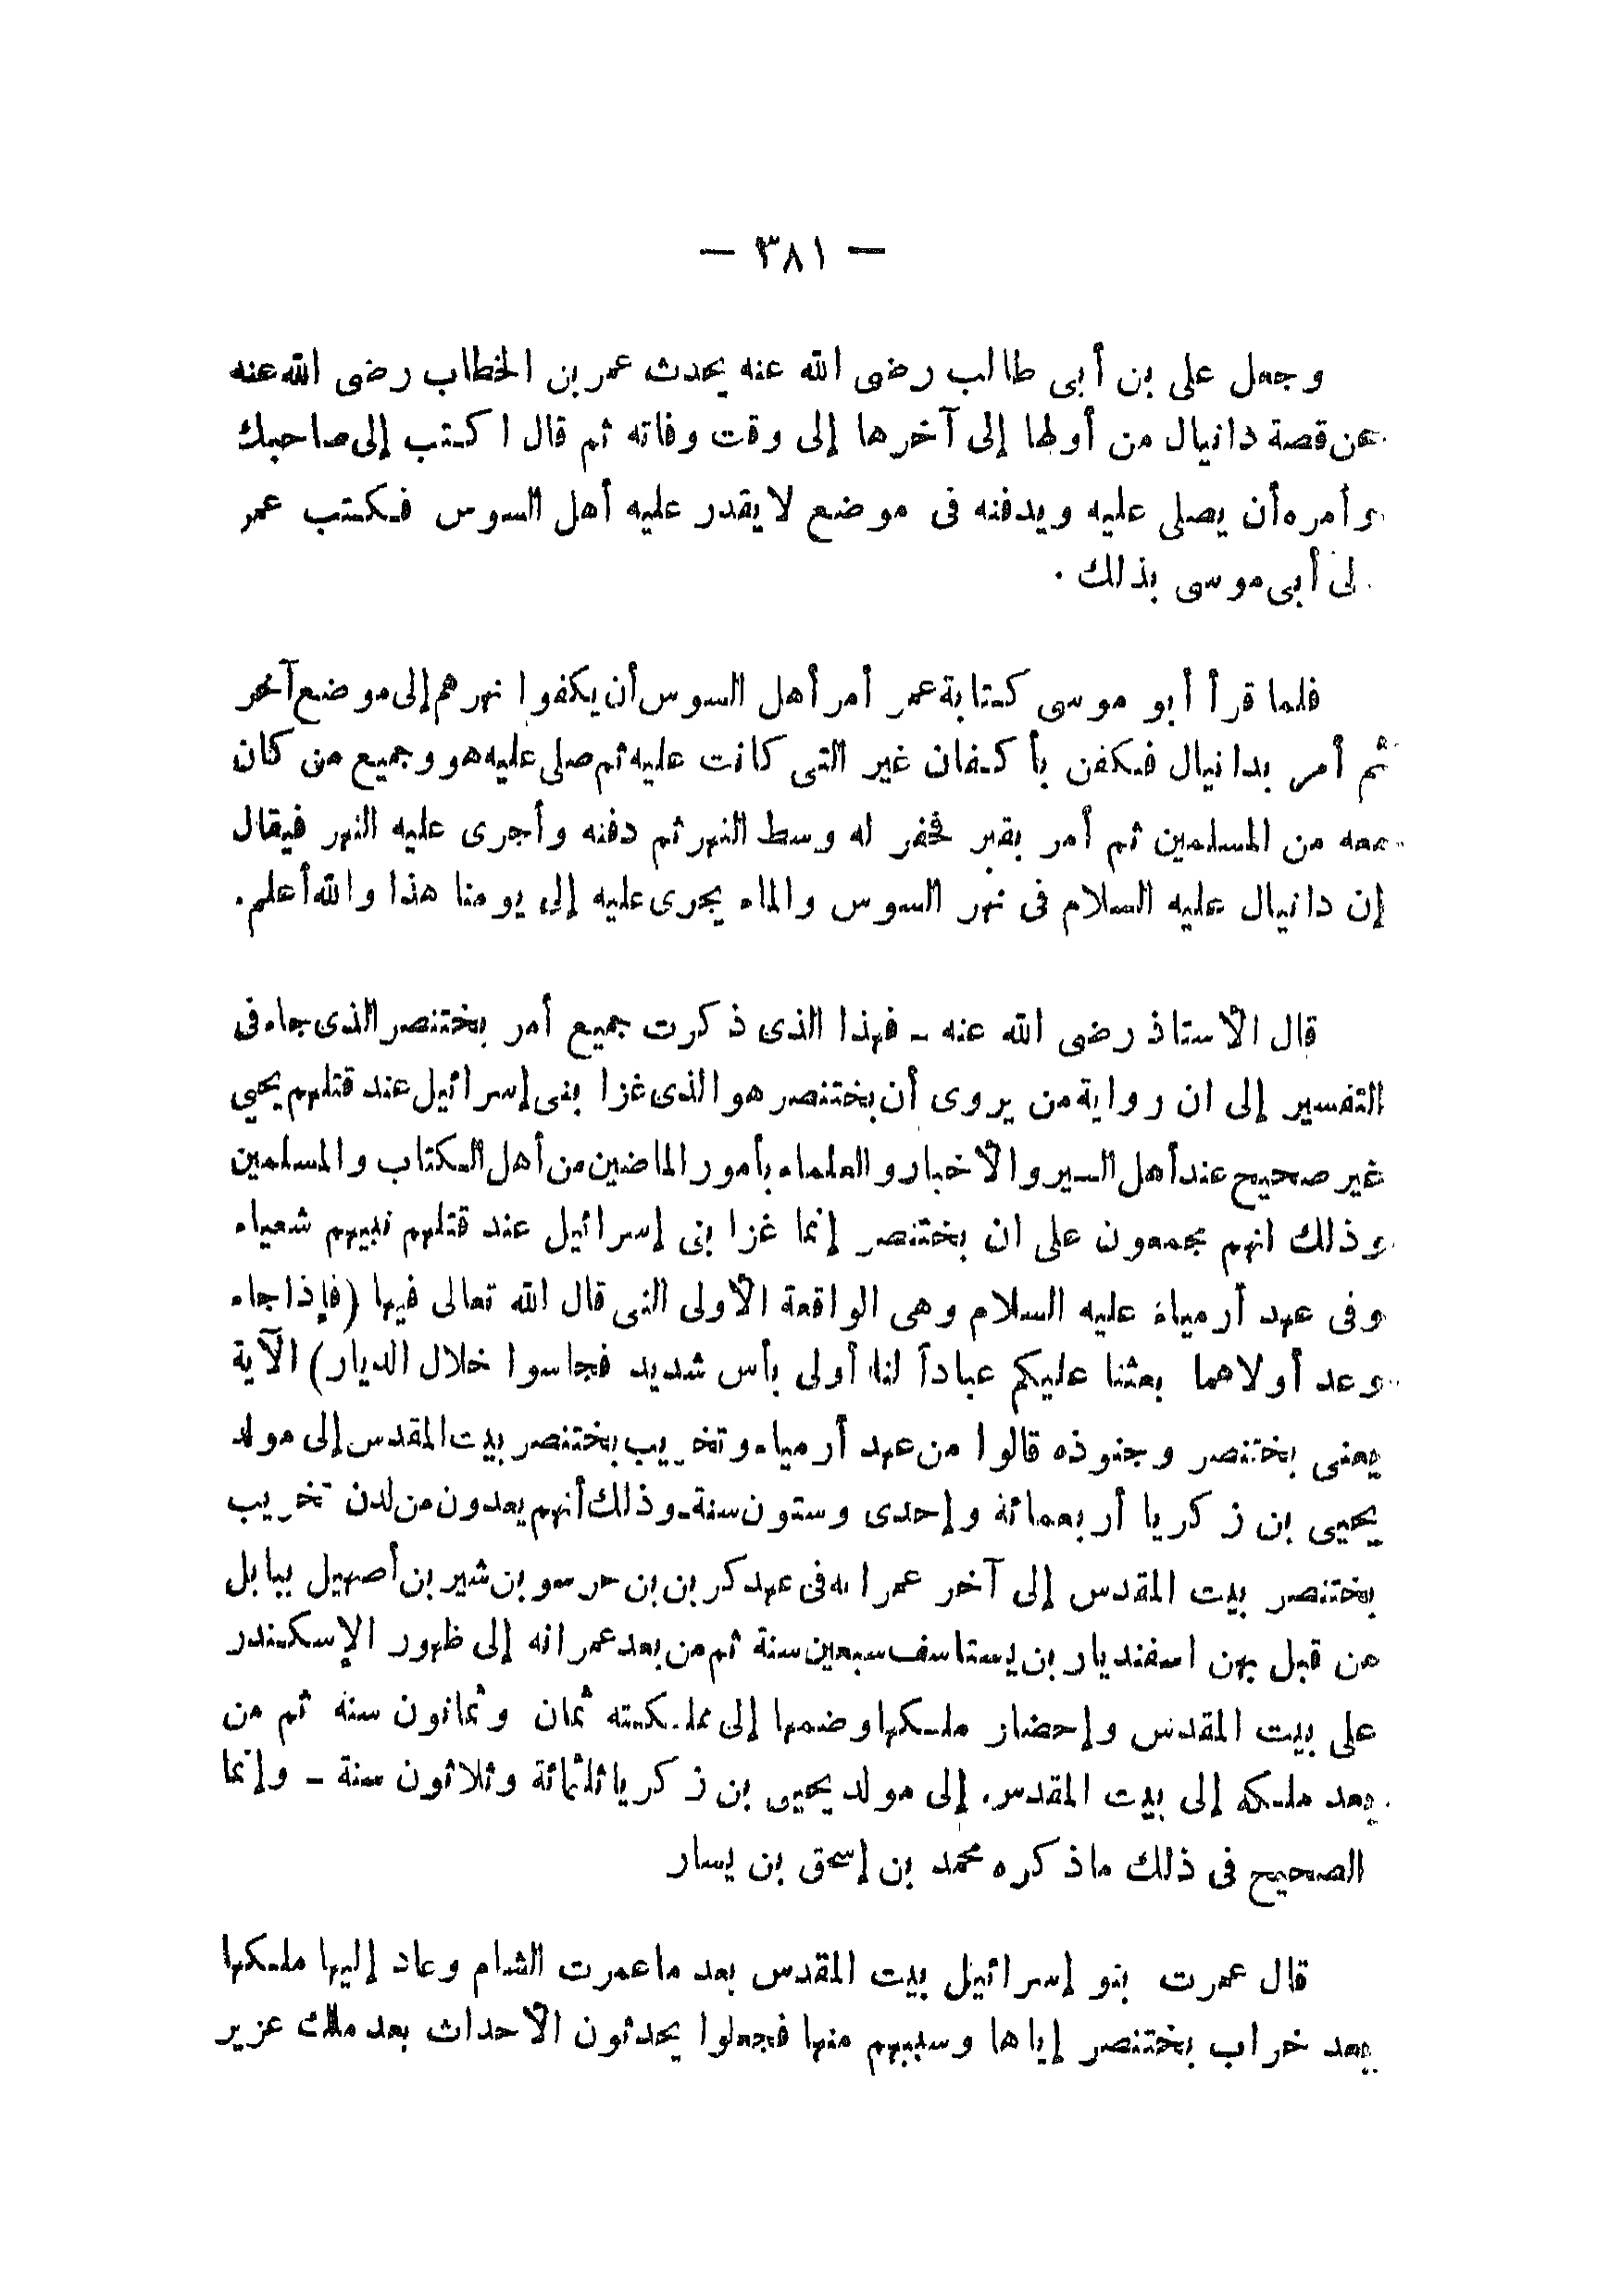 — ٣٨١ —
وجعل على بن أبى طالب رضى الله عنه يحدث عمر بن الخطاب رضى الله عنه
عن قصة دانيال من أولها إلى آخرها إلى وقت وفاته ثم قال اكتب إلى صاحبك
وأمره أن يصلى عليه ويدفنه فى موضع لا يقدر عليه أهل السوس فكتب عمر
لى أبى موسى بذلك .
فلما قرأ أبو موسى كتابة عمر أمر أهل السوس أن يكفوا نهرهم إلى موضع آخر
ثم أمر بدانيال فكفن بأكفان غير التى كانت عليه ثم صلى عليه هو وجميع من كان
معه من المسلمين ثم أمر بقبر فحفر له وسط النهر ثم دفنه وأجرى عليه النهر فيقال
إن دانيال عليه السلام فى نهر السوس والماء يجرى عليه إلى يومنا هذا والله أعلم .
قال الأستاذ رضى الله عنه ـ فهذا الذى ذكرت جميع أمر بختنصر الذى جاء فى
التفسير إلى ان رواية من يروى أن بختنصر هو الذى غزا بنى إسرائيل عند قتلهم يحيى
غير صحيح عند أهل السير والأخبار والعلماء بأمور الماضين من أهل الكتاب والمسلمين
وذلك انهم مجمعون على ان بختنصر إنما غزا بنى إسرائيل عند قتلهم نبيهم شعياء
وفى عهد أرمياء عليه السلام وهى الواقعة الأولى التى قال الله تعالى فيها (فإذا جاء
وعد أولاهما بعثنا عليكم عباداً لنا أولى بأس شديد فجاسوا خلال الديار) الآية
يعنى بختنصر وجنوده قالوا من عهد أرمياء وتخريب بختنصر بيت المقدس إلى مولد
يحيى بن زكريا أربعمائة وإحدى وستون سنة ـ وذلك أنهم يعدون من لدن تخريب
بختنصر بيت المقدس إلى آخر عمرانه فى عهد بن بن شير بن أصهيل ببابل
من قبل بهن اسفنديار بن يستاسف سبعين سنة ثم من بعد عمرانه إلى ظهور الإسكندر
على بيت المقدس وإحضار ملكها وضمها إلى مملكته ثمان وثمانون سنة ثم من
بعد ملكه إلى بيت المقدس . إلى مولد يحيى بن زكريا ثلثمائة وثلاثون سنة ـ وإنما
الصحيح فى ذلك ماذكره محمد بن إسحق بن يسار
قال عمرت بنو إسرائيل بيت المقدس بعد ما عمرت الشام وعاد إليها ملكها
بعد خراب بختنصر إياها وسبيهم منها فجعلوا يحدثون الأحداث بعد ملك عزير